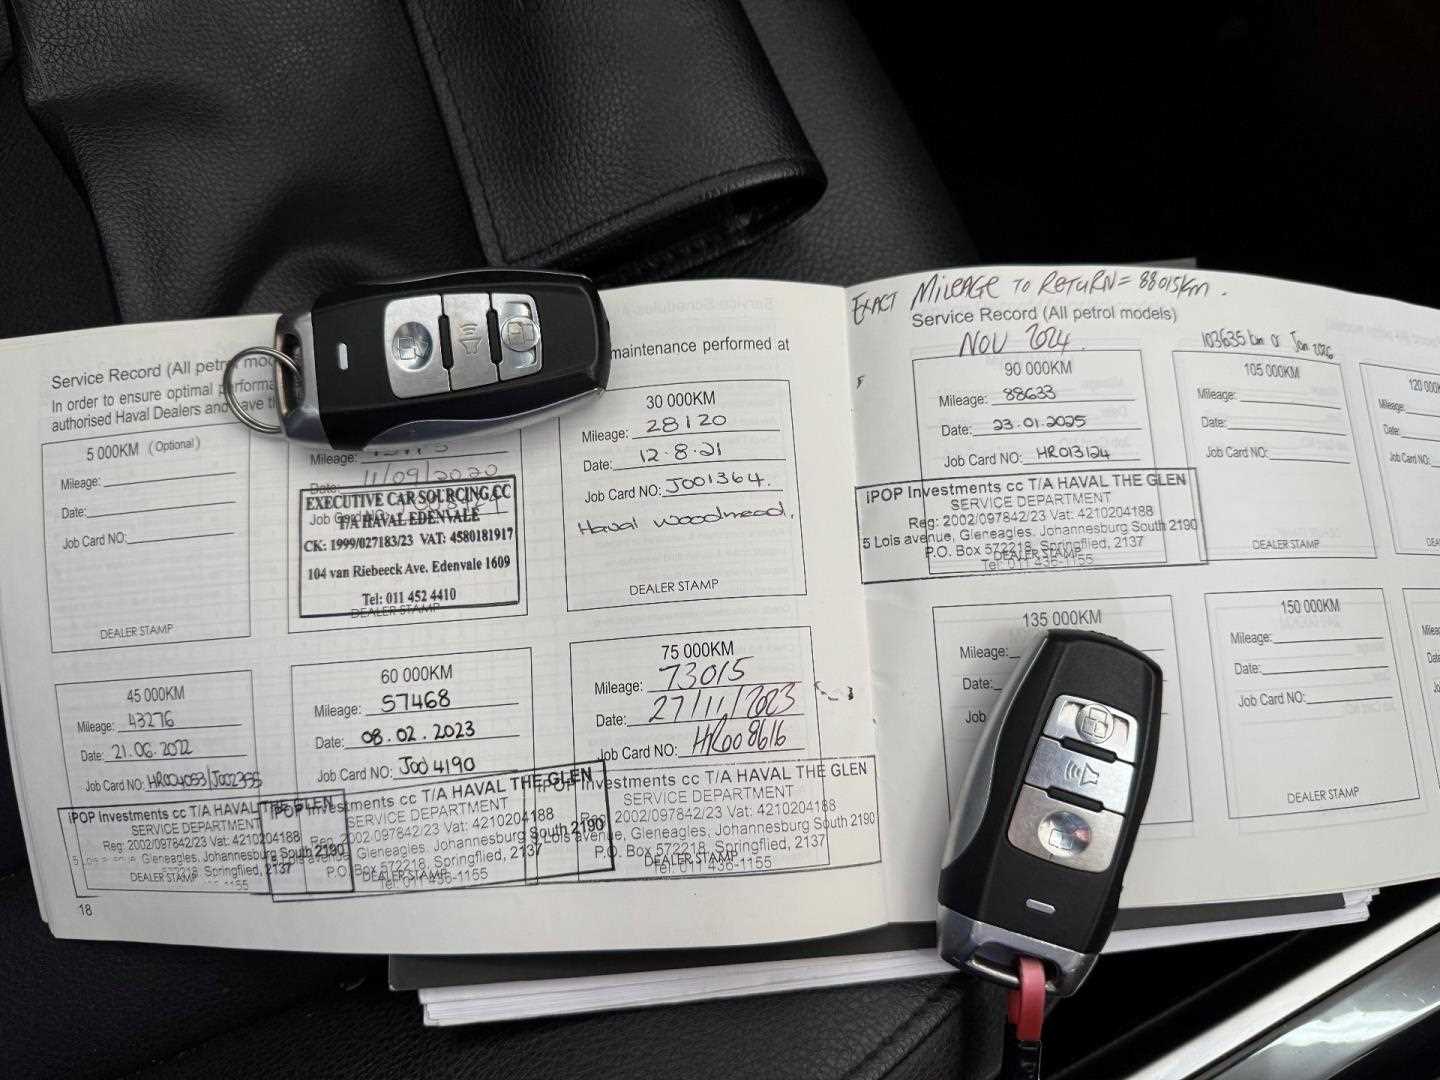 Service Record (All petrol mo
In order to ensure optimal performa
maintenance performed at
authorised Haval Dealers and have th
5 000KM (Optional)
Mileage:
Date:
Job Card NO:
DEALER STAMP
Mileage:
Date: 11/09/2020
Job Card NO:
EXECUTIVE CAR SOURCING CC
T/A HAVAL EDENVALE
CK: 1999/027183/23 VAT: 4580181917
104 van Riebeeck Ave. Edenvale 1609
Tel: 011 452 4410
DEALER STAMP
30 000KM
Mileage: 28120
Date: 12.8.21
Job Card NO: J001364.
Haval Woodmead.
DEALER STAMP
45 000KM
Mileage: 43276
Date: 21.06.2022
Job Card NO: HR004053/J002355
iPOP Investments cc T/A HAVAL THE GLEN
SERVICE DEPARTMENT
Reg: 2002/097842/23 Vat: 4210204188
5 Lois Gleneagles, Johannesburg South 2190
572218, Springflied, 2137
DEALER STAMP
-1155
60 000KM
Mileage: 57468
Date: 08.02.2023
Job Card NO: J004190
iPOP Investments cc T/A HAVAL THE GLEN
SERVICE DEPARTMENT
Reg: 2002/097842/23 Vat: 4210204188
Lois avenue, Gleneagles, Johannesburg South 2190
P.O. Box 572218, Springflied, 2137
DEALER STAMP
Tel: 011 436-1155
75 000KM
Mileage: 73015
Date: 27/11/2023
Job Card NO: HR008616
iPOP Investments cc T/A HAVAL THE GLEN
SERVICE DEPARTMENT
Reg: 2002/097842/23 Vat: 4210204188
Lois avenue, Gleneagles, Johannesburg South 2190
P.O. Box 572218, Springflied, 2137
DEALER STAMP
Tel: 011 436-1155
18
EXACT MILEAGE TO RETURN = 88015km.
Service Record (All petrol models)
NOV 2024.
103635 km or Jan 2026
90 000KM
Mileage: 88633
Date: 23.01.2025
Job Card NO: HR013124
iPOP Investments cc T/A HAVAL THE GLEN
SERVICE DEPARTMENT
Reg: 2002/097842/23 Vat: 4210204188
5 Lois avenue, Gleneagles, Johannesburg South 2190
P.O. Box 572218, Springflied, 2137
DEALER STAMP
Tel: 011 436-1155
105 000KM
Mileage:
Date:
Job Card NO:
DEALER STAMP
120 000K
Mileage:
Date:
Job Card NO:
135 000KM
Mileage:
Date:
Job
150 000KM
Mileage:
Date:
Job Card NO:
DEALER STAMP
Mileag
Date:
Job